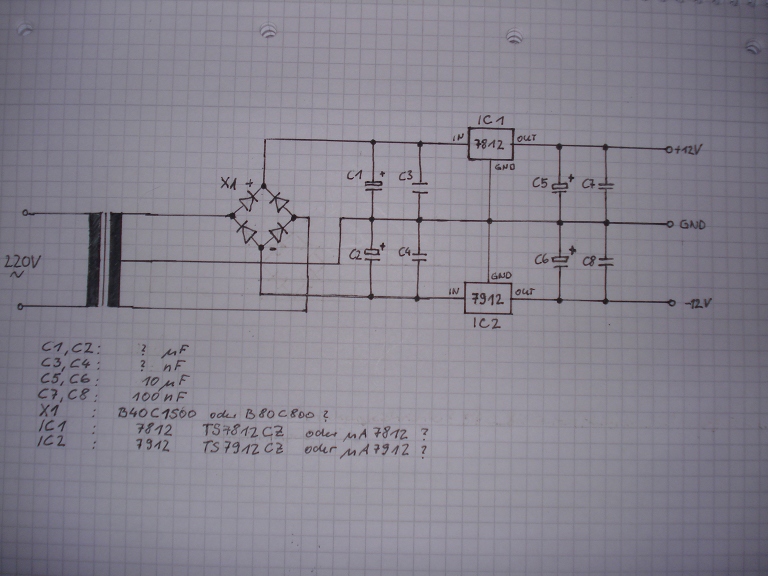 IC1
IN 7812 OUT
GND
+12V
X1 +
C1 +
C3
C5 +
C7
GND
220V
~
-
C2 +
C4
C6 +
C8
GND
IN 7912 OUT
IC2
-12V
C1, C2: ? µF
C3, C4: ? nF
C5, C6: 10 µF
C7, C8: 100 nF
X1 : B40C1500 oder B80C800 ?
IC1 : 7812 TS7812CZ oder µA7812 ?
IC2 : 7912 TS7912CZ oder µA7912 ?